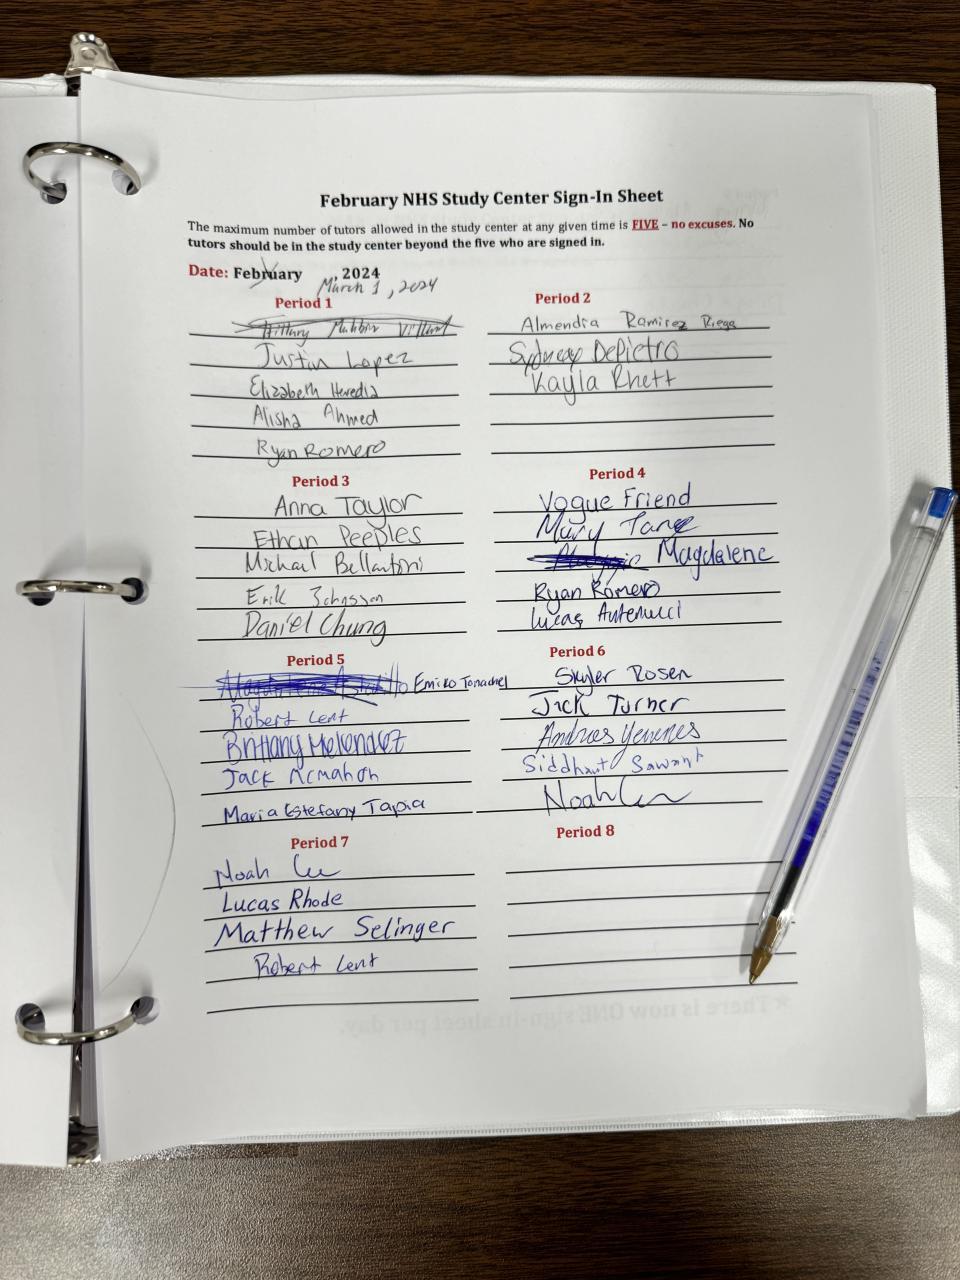 February NHS Study Center Sign-In Sheet
The maximum number of tutors allowed in the study center at any given time is FIVE – no excuses. No
tutors should be in the study center beyond the five who are signed in.
Date: February , 2024
March 1, 2024
Period 1
Hillary
Justin Lopez
Elizabeth Heredia
Alisha Ahmed
Ryan Romero
Period 2
Almendra Ramirez Riega
Sydney DePietro
Kayla Rhett
Period 3
Anna Taylor
Ethan Peeples
Michael Bellantoni
Erik Johnsson
Daniel Chung
Period 4
Vogue Friend
Mary Tange
Magdalene
Ryan Romero
Lucas Antenucci
Period 5
Emiko
Robert Lent
Brittany Melendez
Jack McMahon
Maria Estefany Tapia
Period 6
Skyler Rosen
Jack Turner
Andres Yevenes
Siddhant Sawant
Noah
Period 7
Noah
Lucas Rhode
Matthew Selinger
Robert Lent
Period 8
*There is now ONE sign-in sheet per day.